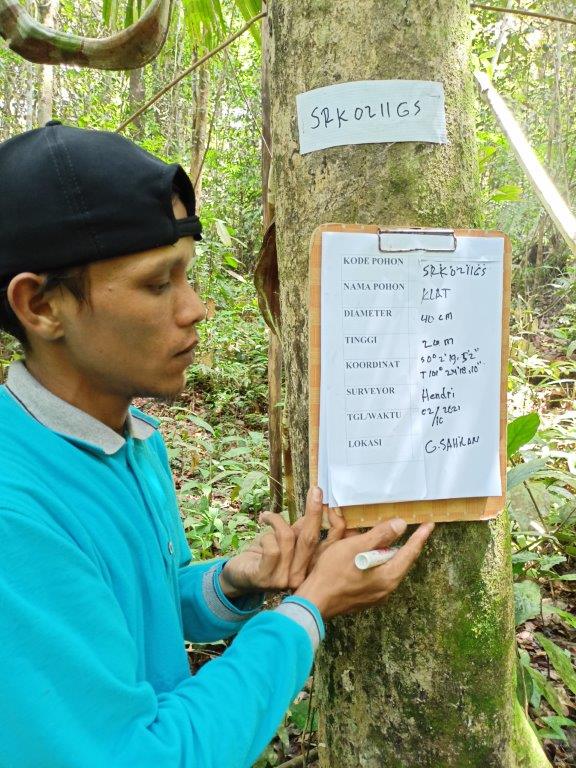 SRK0211GS
KODE POHON SRK0211GS
NAMA POHON KLAT
DIAMETER 40 cm
TINGGI 20 m
KOORDINAT S 0° 2' 19. 52"
T 101° 24' 18.10"
SURVEYOR Hendri
TGL/WAKTU 02/2021
/10
LOKASI G. SAHILAN